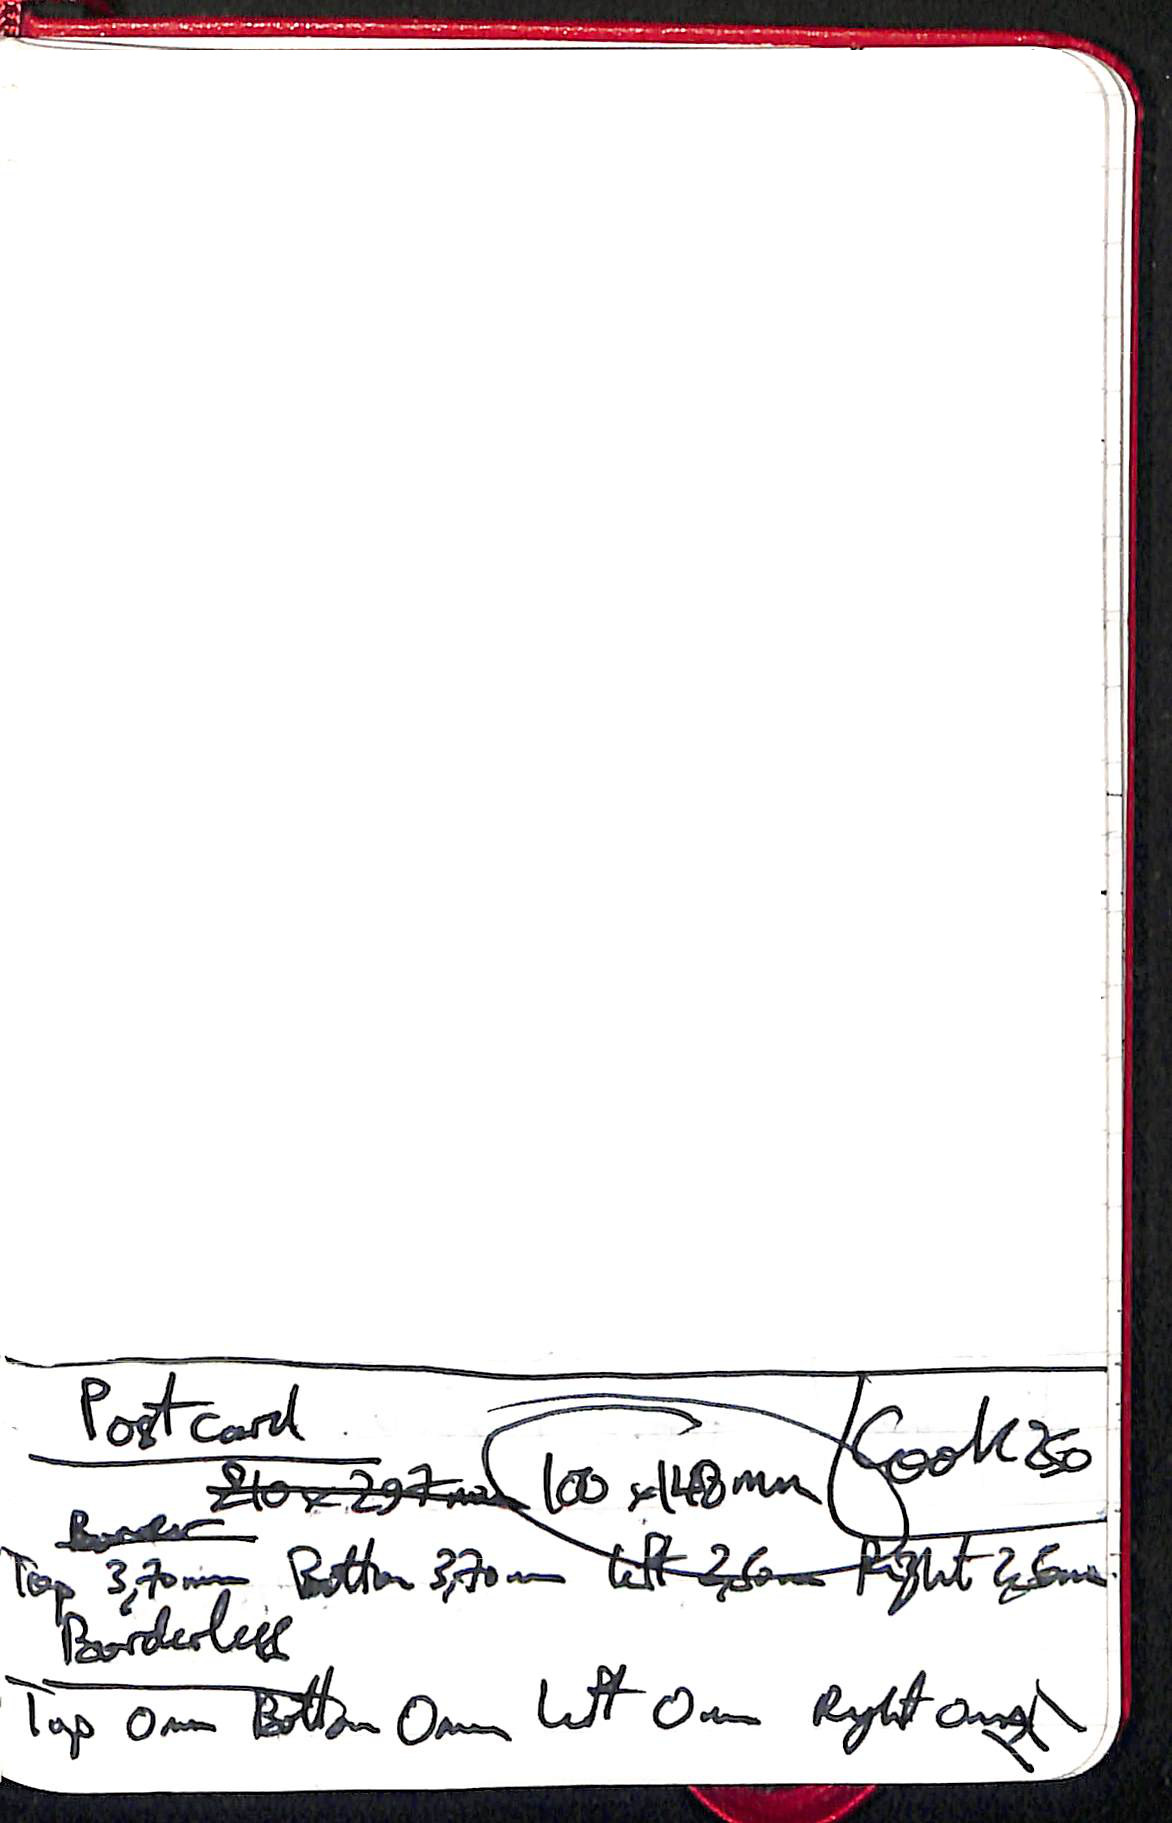 Postcard
210 x 297 mm 100 x 148 mm Cook 250
Border
Top 3,70mm Bottom 3,70mm Left 2,56mm Right 2,56mm
Borderless
Top 0mm Bottom 0mm Left 0mm Right 0mm